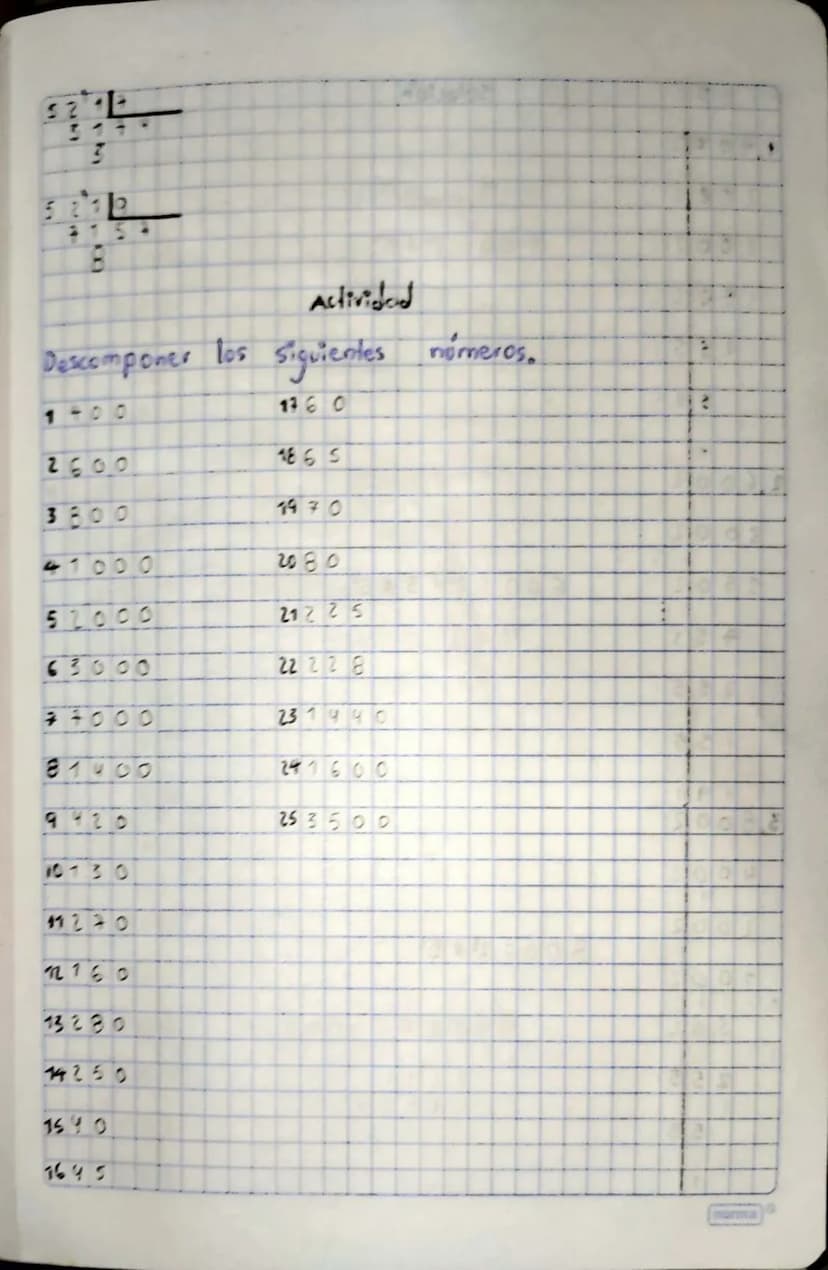 5 2 1 7
3 1 7
3
5 2 1 9
7 1 5 7
8
Actividad
Descomponer los siguientes números.
1 700 17 60
2 600 18 65
3 800 19 70
4 1000 20 80
5 2000 21 225
6 3000 22 228
7 7000 23 1440
8 1400 24 1600
9 420 25 3500
10 130
11 270
12 160
13 280
14 250
15 40
16 45
norma